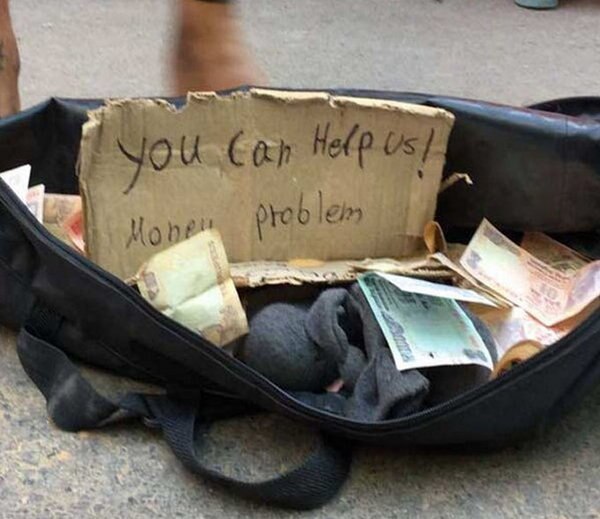 you can Help us!
Money problem
10